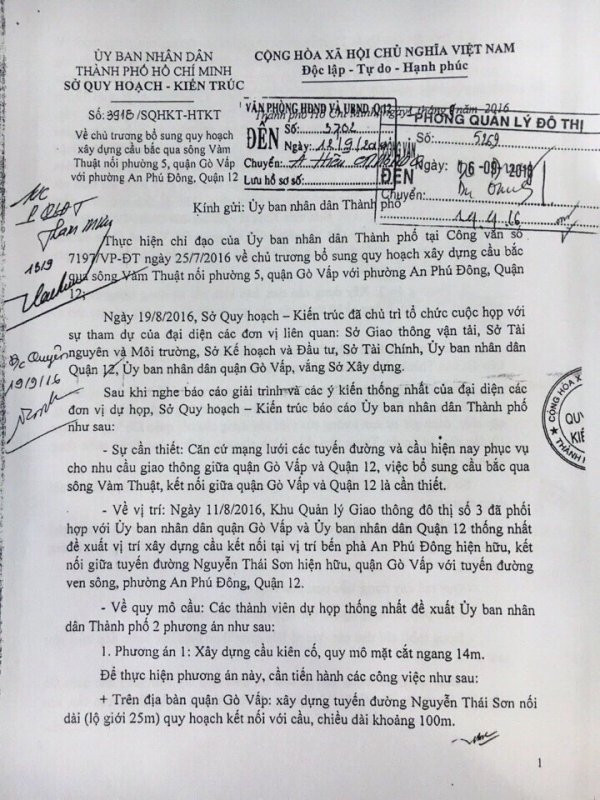 ỦY BAN NHÂN DÂN
THÀNH PHỐ HỒ CHÍ MINH
SỞ QUY HOẠCH - KIẾN TRÚC
CỘNG HÒA XÃ HỘI CHỦ NGHĨA VIỆT NAM
Độc lập - Tự do - Hạnh phúc
Số: 3918/SQHKT-HTKT
Thành phố Hồ Chí Minh, ngày tháng 9 năm 2016
Về chủ trương bổ sung quy hoạch
xây dựng cầu bắc qua sông Vàm
Thuật nối phường 5, quận Gò Vấp
với phường An Phú Đông, Quận 12
VĂN PHÒNG HĐND VÀ UBND. Q12
ĐẾN
Số: 3702
Ngày:
Chuyển:
Lưu hồ sơ số:
PHÒNG QUẢN LÝ ĐÔ THỊ
CÔNG VĂN
ĐẾN
Số: 5269
Ngày:
Chuyển:
19.9.16
Kính gửi: Ủy ban nhân dân Thành phố
13/9
Thực hiện chỉ đạo của Ủy ban nhân dân Thành phố tại Công văn số
7197/VP-ĐT ngày 25/7/2016 về chủ trương bổ sung quy hoạch xây dựng cầu bắc
qua sông Vàm Thuật nối phường 5, quận Gò Vấp với phường An Phú Đông, Quận
12;
Ngày 19/8/2016, Sở Quy hoạch – Kiến trúc đã chủ trì tổ chức cuộc họp với
sự tham dự của đại diện các đơn vị liên quan: Sở Giao thông vận tải, Sở Tài
nguyên và Môi trường, Sở Kế hoạch và Đầu tư, Sở Tài Chính, Ủy ban nhân dân
Quận 12, Ủy ban nhân dân quận Gò Vấp, vắng Sở Xây dựng.
19/9/16
Sau khi nghe báo cáo giải trình và các ý kiến thống nhất của đại diện các
đơn vị dự họp, Sở Quy hoạch – Kiến trúc báo cáo Ủy ban nhân dân Thành phố
như sau:
- Sự cần thiết: Căn cứ mạng lưới các tuyến đường và cầu hiện nay phục vụ
cho nhu cầu giao thông giữa quận Gò Vấp và Quận 12, việc bổ sung cầu bắc qua
sông Vàm Thuật, kết nối giữa quận Gò Vấp và Quận 12 là cần thiết.
- Về vị trí: Ngày 11/8/2016, Khu Quản lý Giao thông đô thị số 3 đã phối
hợp với Ủy ban nhân dân quận Gò Vấp và Ủy ban nhân dân Quận 12 thống nhất
đề xuất vị trí xây dựng cầu kết nối tại vị trí bến phà An Phú Đông hiện hữu, kết
nối giữa tuyến đường Nguyễn Thái Sơn hiện hữu, quận Gò Vấp với tuyến đường
ven sông, phường An Phú Đông, Quận 12.
- Về quy mô cầu: Các thành viên dự họp thống nhất đề xuất Ủy ban nhân
dân Thành phố 2 phương án như sau:
1. Phương án 1: Xây dựng cầu kiên cố, quy mô mặt cắt ngang 14m.
Để thực hiện phương án này, cần tiến hành các công việc như sau:
+ Trên địa bàn quận Gò Vấp: xây dựng tuyến đường Nguyễn Thái Sơn nối
dài (lộ giới 25m) quy hoạch kết nối với cầu, chiều dài khoảng 100m.
1